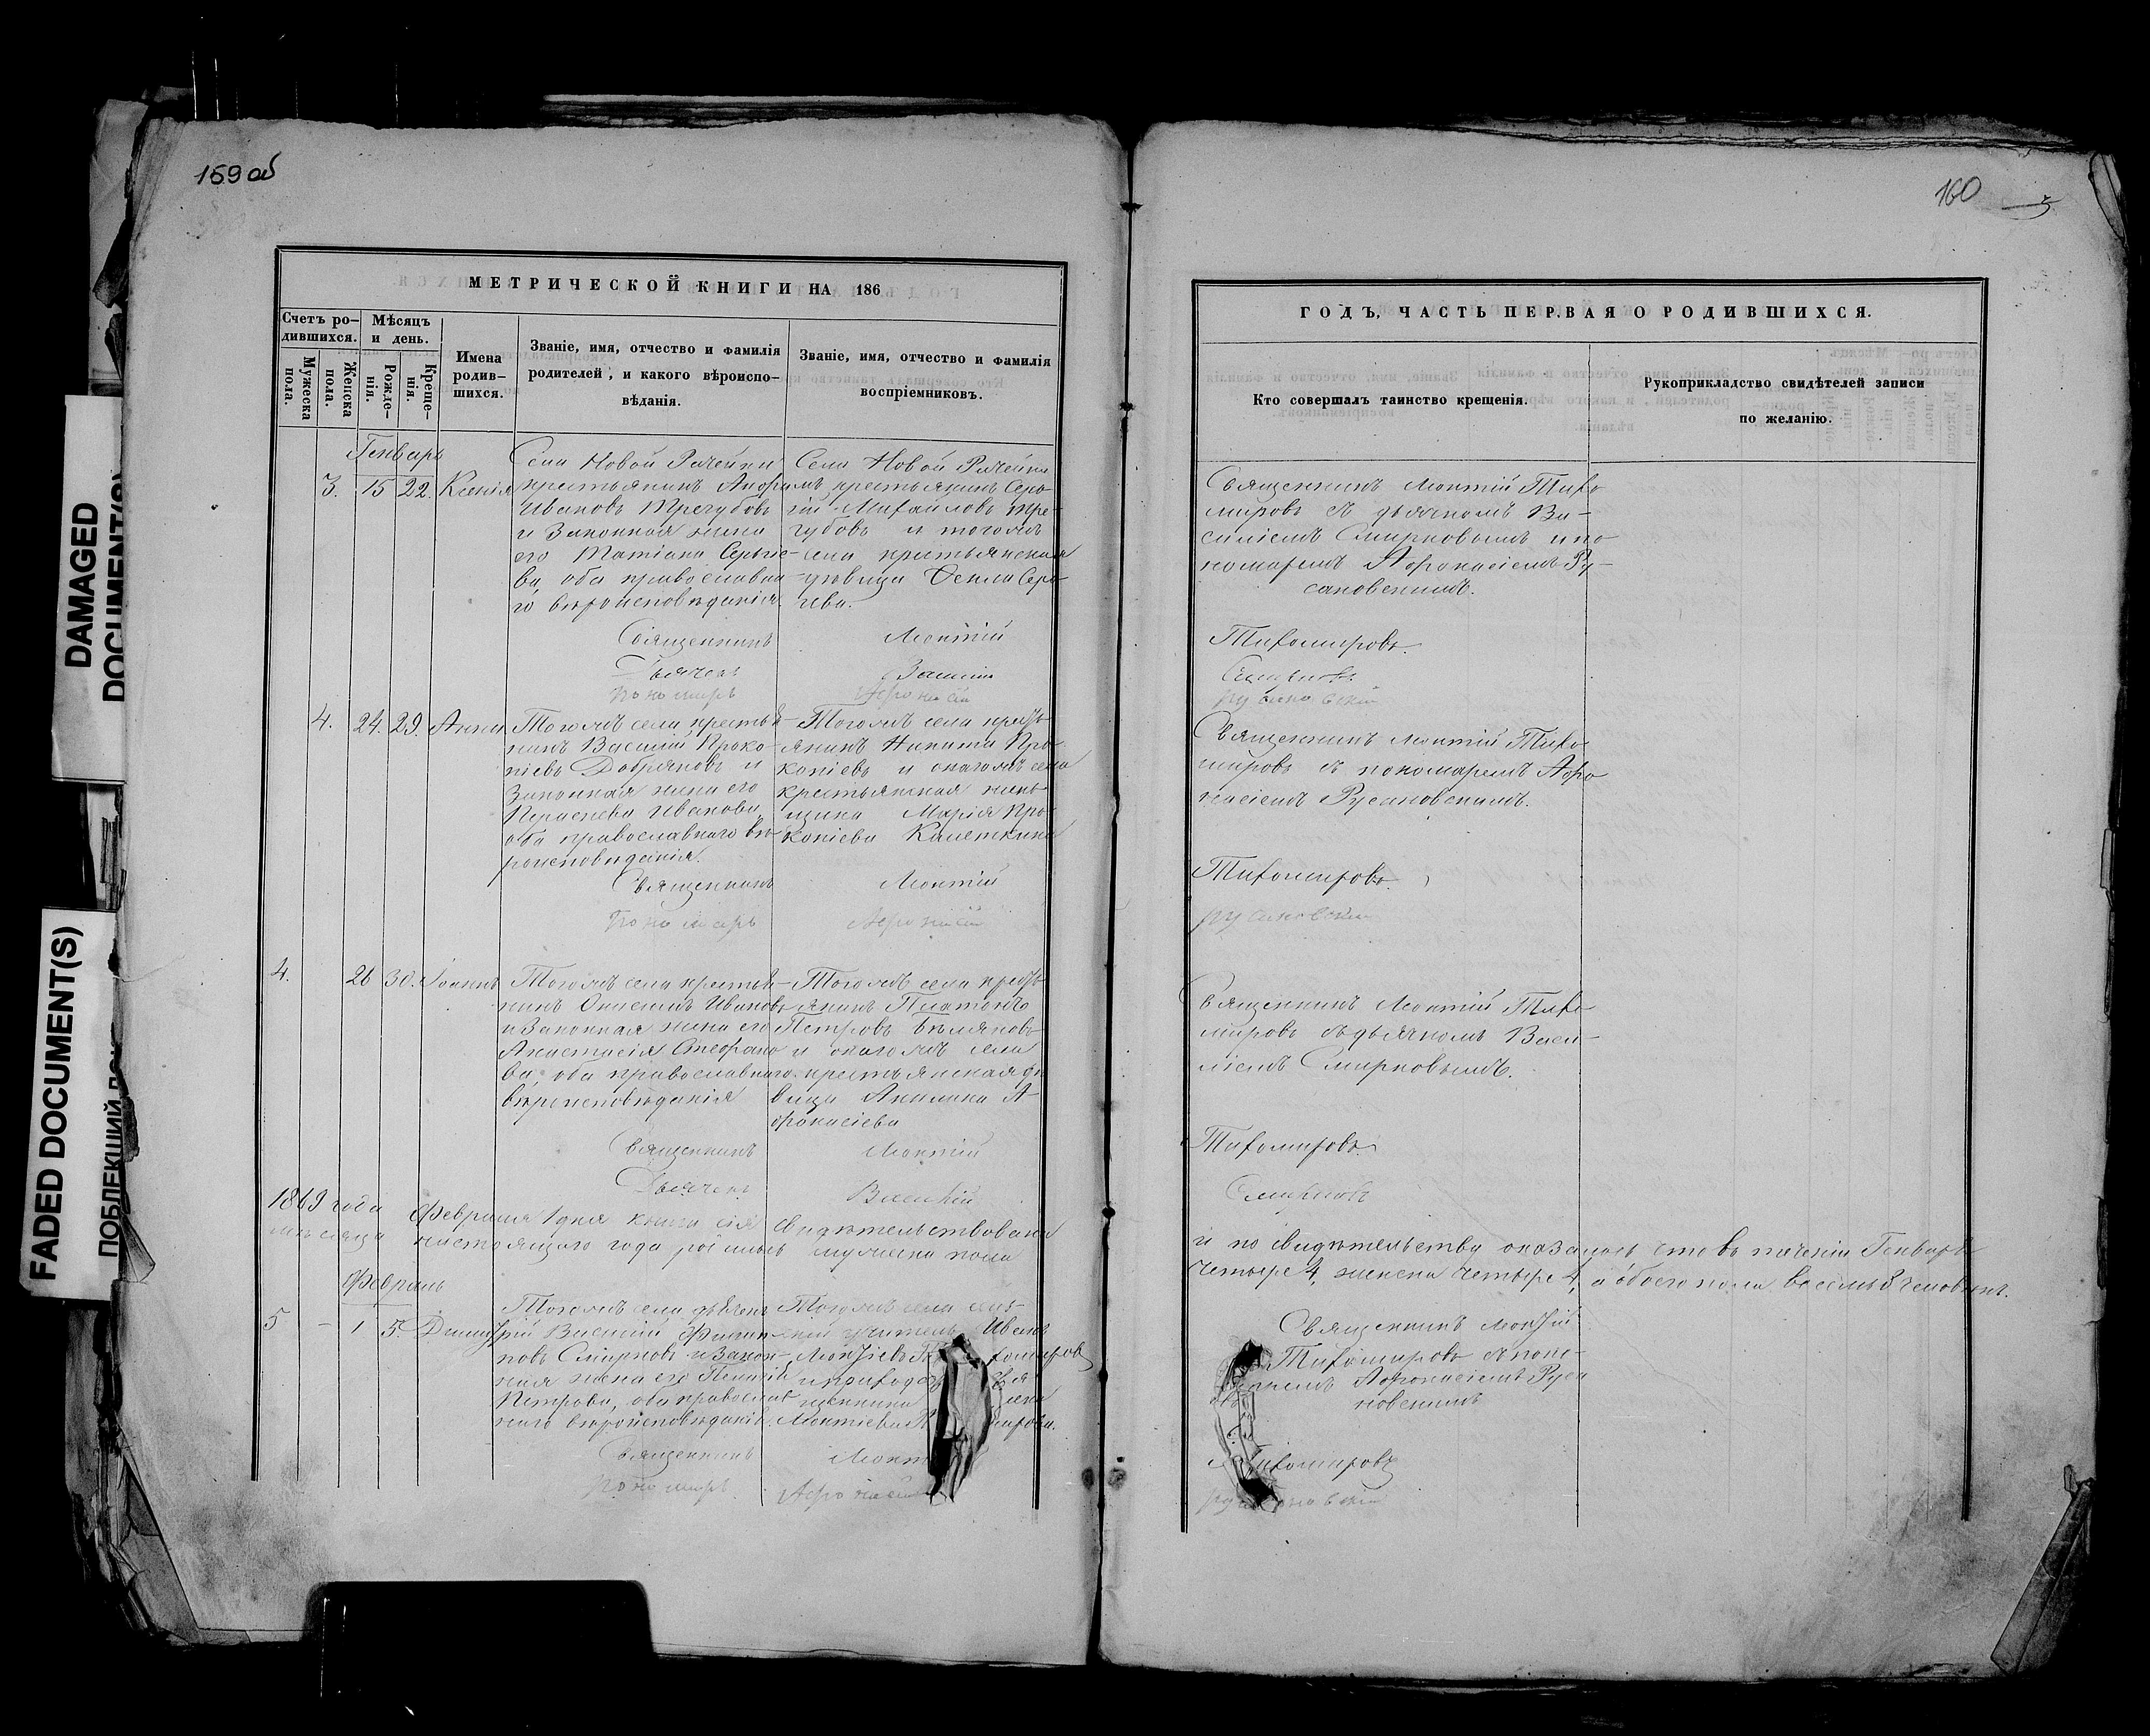 159 об
160
DAMAGED
DOCUMENT(S)
FADED DOCUMENT(S)
ПОБЛЕКШИЙ
МЕТРИЧЕСКОЙ КНИГИ НА 186
Счетъ ро-
дившихся.
Мѣсяцъ
и день.
Мужеска
пола.
Женска
пола.
Рожде-
нія.
Креще-
нія.
Имена
родив-
шихся.
Званіе, имя, отчество и фамилія
родителей, и какого вѣроиспо-
вѣданія.
Званіе, имя, отчество и фамилія
воспріемниковъ.
Генварь
3. 15 22. Ксенія
Села Новой Рачейки
крестьянинъ
Ивановъ Трегубовъ
и Законная жена
его Татіана
ва, оба православна
го вѣроисповѣданія.
Села Новой Рачейки
крестьянинъ Сер-
гій Михайловъ Тре-
губовъ и тогожъ
села крестьянская
дѣвица Ѳекла Сер-
гева.
Священникъ Леонтій
Дьячекъ Василій
Пономарь Афонасій
4. 24. 29. Анна
Тогожъ села крестья-
нинъ Василій Проко-
піевъ Добряковъ и
Законная жена его
Параскева Иванова,
оба православнаго вѣ-
роисповѣданія.
Тогожъ села кресть-
янинъ Никита Про-
копіевъ и онагожъ села
крестьянская жен-
щина Марія Про-
копіева
Священникъ Леонтій
Пономарь Афонасій
4. 26 30. Іоаннъ
Тогожъ села крестья-
нинъ Онисимъ Ивановъ
и Законная жена его
Анастасія Стефано
ва, оба православнаго
вѣроисповѣданія
Тогожъ села кресть-
янинъ Платонъ
Петровъ Бѣляковъ
и онагожъ села
крестьянская дѣ-
вица Акилина А-
фонасіева
Священникъ Леонтій
Дьячекъ Василій
1869 года Февраля 1 дня книга сія свидѣтельствована
мѣсяца настоящаго года мужеска пола
Февраль
5 - 1 5. Димитрій
Тогожъ села дьячекъ
Василій Филип-
повъ Смирновъ и Закон-
ная жена его
Петрова, оба православ
наго вѣроисповѣданія.
Тогожъ села сель-
скій учитель Иванъ
Леонтіевъ
щенника
Леонтіева
Священникъ
Пономарь Афонасій
ГОДЪ, ЧАСТЬ ПЕРВАЯ О РОДИВШИХСЯ.
Кто совершалъ таинство крещенія.
Рукоприкладство свидѣтелей записи
по желанію.
Священникъ Леонтій Тихо
мировъ съ дьячкомъ Ва-
силіемъ Смирновымъ и по
номаремъ Афонасіемъ Ру-
сановскимъ.
Тихомировъ.
Смирновъ.
Русановскій
Священникъ Леонтій Тихо
мировъ съ пономаремъ Афо
насіемъ Русановскимъ.
Тихомировъ.
Русановскій
Священникъ Леонтій Тихо
мировъ съ дьячкомъ Васи-
ліемъ Смирновымъ.
Тихомировъ.
Смирновъ
и по свидѣтельству оказалось что въ теченіи Генваря
четыре 4, женска четыре 4, а обоего пола восемь 8 человѣкъ.
Священникъ Леонтій
Тихомировъ съ поно-
маремъ Афонасіемъ Руса
новскимъ
Тихомировъ